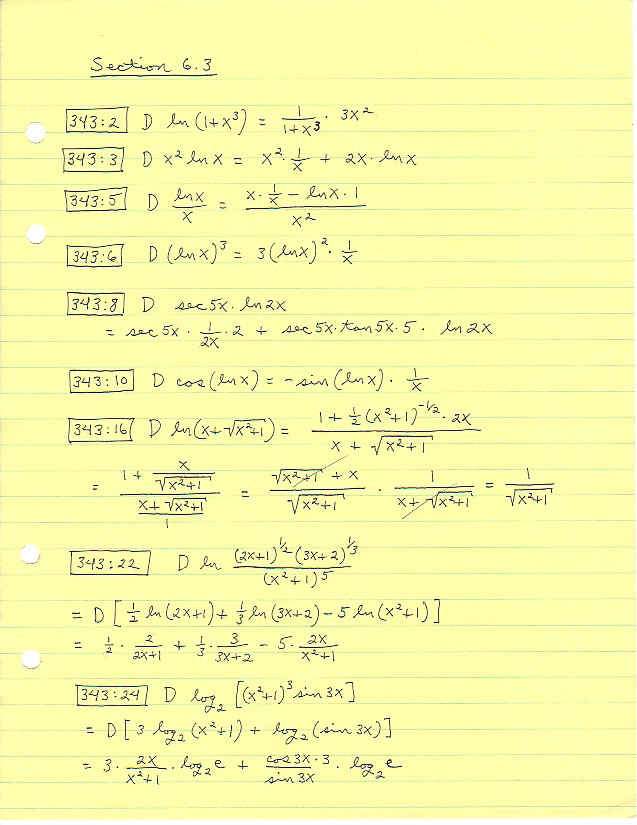 Section 6.3
343:2 D ln(1+x³) = 1/(1+x³) · 3x²
343:3 D x² ln x = x² · 1/x + 2x · ln x
343:5 D (ln x)/x = (x · 1/x − ln x · 1)/x²
343:6 D (ln x)³ = 3(ln x)² · 1/x
343:8 D sec 5x · ln 2x
= sec 5x · 1/(2x) · 2 + sec 5x · tan 5x · 5 · ln 2x
343:10 D cos(ln x) = −sin(ln x) · 1/x
343:16 D ln(x+√(x²+1)) = (1 + ½(x²+1)^(−1/2) · 2x)/(x + √(x²+1))
= (1 + x/√(x²+1))/((x+√(x²+1))/1) = (√(x²+1) + x)/√(x²+1) · 1/(x+√(x²+1)) = 1/√(x²+1)
343:22 D ln ((2x+1)^(1/2) (3x+2)^(1/3))/(x²+1)^5
= D [½ ln(2x+1) + ⅓ ln(3x+2) − 5 ln(x²+1)]
= ½ · 2/(2x+1) + ⅓ · 3/(3x+2) − 5 · 2x/(x²+1)
343:24 D log₂ [(x²+1)³ sin 3x]
= D [3 log₂(x²+1) + log₂(sin 3x)]
= 3 · 2x/(x²+1) · log₂e + (cos 3x · 3)/(sin 3x) · log₂e